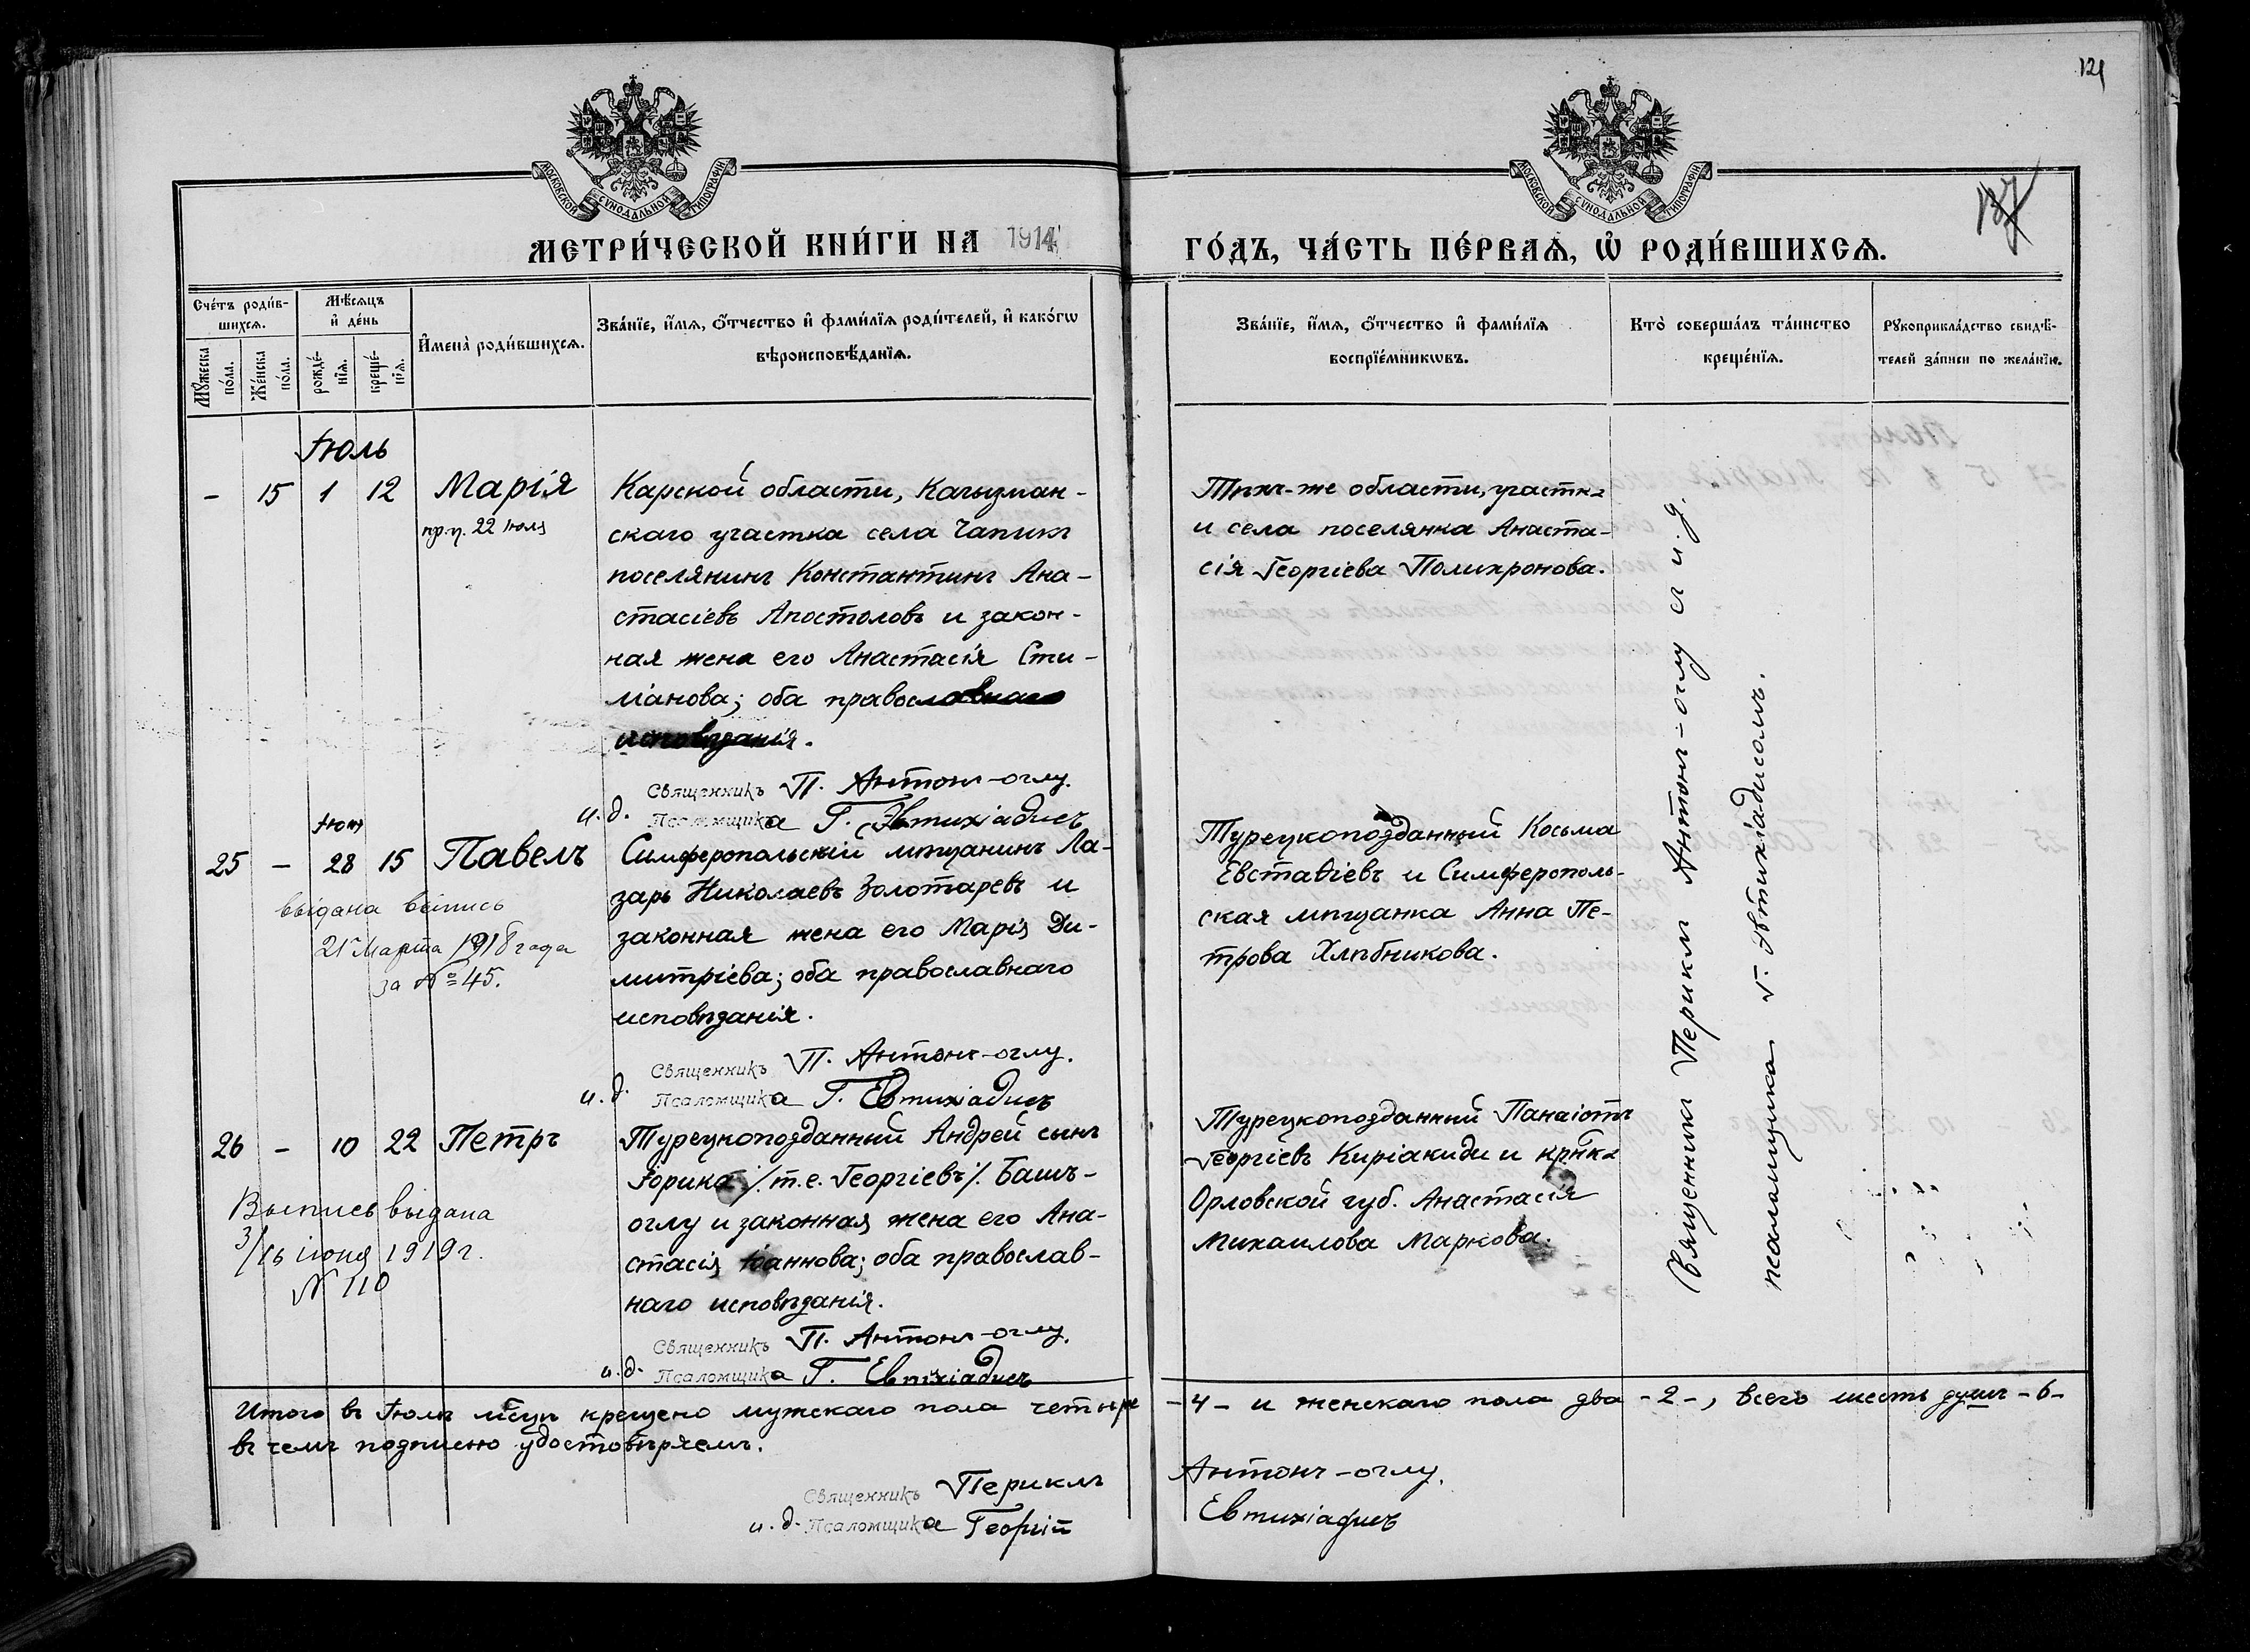 121
137
МОСКОВСКОЙ СѴНОДАЛЬНОЙ ТИПОГРАФІИ
МОСКОВСКОЙ СѴНОДАЛЬНОЙ ТИПОГРАФІИ
МЕТРИ́ЧЕСКОЙ КНИ́ГИ НА 1914
ГО́ДЪ, ЧА́СТЬ ПЕ́РВАѦ, Ѡ҆ РОДИ́ВШИХСѦ.
Сче́тъ роди́в-
шихсѧ.
Мꙋ́жеска
по́ла.
Же́нска
по́ла.
Мѣ́сѧцъ
и҆ де́нь
рожде́-
нїѧ.
креще́-
нїѧ.
И҆мена̀ роди́вшихсѧ.
Зва́нїе, и҆́мѧ, ѻ҆́тчество и҆ фами́лїѧ роди́телей, и҆ како́гѡ
вѣроисповѣ́данїѧ.
Зва́нїе, и҆́мѧ, ѻ҆́тчество и҆ фами́лїѧ
воспрїе́мникѡвъ.
Кто̀ соверша́лъ та́инство
креще́нїѧ.
Рꙋкоприкла́дство свидѣ́-
телей за́писи по жела́нїю.
Іюль
- 15 1 12 Марія
пр. п. 22 Іюля
Карской области, Кагызман-
скаго участка села Чапикъ
поселянинъ Константинъ Ана-
стасіевъ Апостоловъ и закон-
ная жена его Анастасія Сти-
ліанова; оба православнаго
исповѣданія.
Священникъ П. Антонъ-оглу.
и. д. Псаломщика Г. Евтихіадисъ
Тѣхъ-же области, участка
и села поселянка Анаста-
сія Георгіева Полихронова.
Іюня
25 - 28 15 Павелъ
выдана выпись
21 Марта 1918 года
за № 45.
Симферопольскій мѣщанинъ Ла-
зарь Николаевъ Золотаревъ и
законная жена его Марія Ди-
митріева; оба православнаго
исповѣданія.
Священникъ П. Антонъ-оглу.
и. д. Псаломщика Г. Евтихіадисъ
Турецкоподданный Косьма
Евстаѳіевъ и Симферополь-
ская мѣщанка Анна Пе-
трова Хлѣбникова.
26 - 10 22 Петръ
Выпись выдана
3/16 іюня 1919 г.
N 110
Турецкоподданный Андрей сынъ
Іорика /т. е. Георгіевъ/ Башъ-
оглу и законная жена его Ана-
стасія Іоаннова; оба православ-
наго исповѣданія.
Священникъ П. Антонъ-оглу.
и. д. Псаломщика Г. Евтихіадисъ
Турецкоподданный Панаіотъ
Георгіевъ Киріакиди и кр-нка
Орловской губ. Анастасія
Михаилова Маркова.
Священникъ Периклъ Антонъ-оглу съ и. д.
псаломщика Г. Евтихіадисомъ.
Итого въ Іюлѣ мѣсяцѣ крещено мужскаго пола четыре -4- и женскаго пола два -2-, всего шесть душъ -6-
въ чемъ подписью удостовѣряемъ.
Священникъ Периклъ Антонъ-оглу.
и. д. Псаломщика Георгій Евтихіадисъ